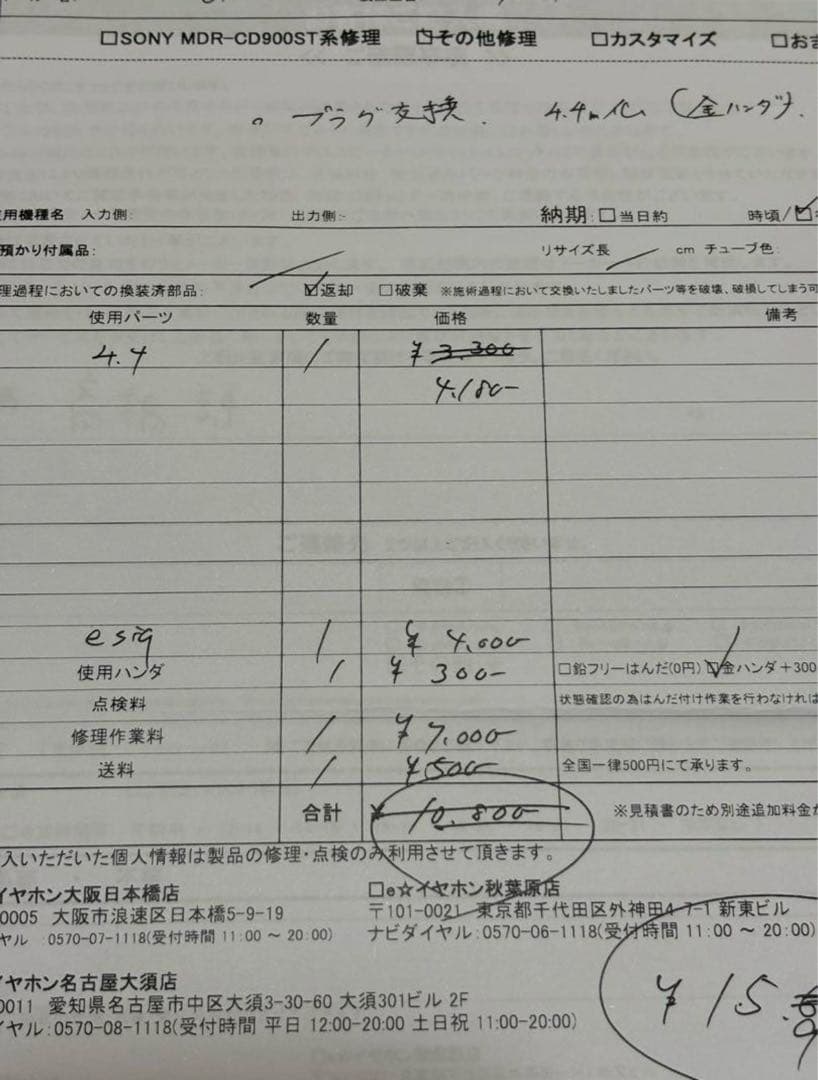 □SONY MDR-CD900ST系修理 ☑その他修理 □カスタマイズ □お
。プラグ交換. 4.4m化 (金ハンダ).
用機種名 入力側: 出力側:- 納期:□当日約 時頃/☑
預かり付属品: リサイズ長 cm チューブ色:
理過程においての換装済部品: ☑返却 □破棄 ※施術過程において交換いたしましたパーツ等を破壊、破損してしまう可
使用パーツ 数量 価格 備考
4.4 1 ¥3.300
4.180-
esig 1 ¥4.000-
使用ハンダ 1 ¥300- □鉛フリーはんだ(0円) ☑金ハンダ+300
点検料 状態確認の為はんだ付け作業を行わなければ
修理作業料 1 ¥7.000-
送料 1 ¥500- 全国一律500円にて承ります。
合計 ¥10.800- ※見積書のため別途追加料金が
入いただいた個人情報は製品の修理・点検のみ利用させて頂きます。
イヤホン大阪日本橋店 □e☆イヤホン秋葉原店
0005 大阪市浪速区日本橋5-9-19 〒101-0021 東京都千代田区外神田4-7-1 新東ビル
ヤル :0570-07-1118(受付時間 11:00 ～ 20:00) ナビダイヤル:0570-06-1118(受付時間 11:00 ～ 20:00)
イヤホン名古屋大須店
0011 愛知県名古屋市中区大須3-30-60 大須301ビル 2F
イヤル:0570-08-1118(受付時間 平日 12:00-20:00 土日祝 11:00-20:00)
¥15.9